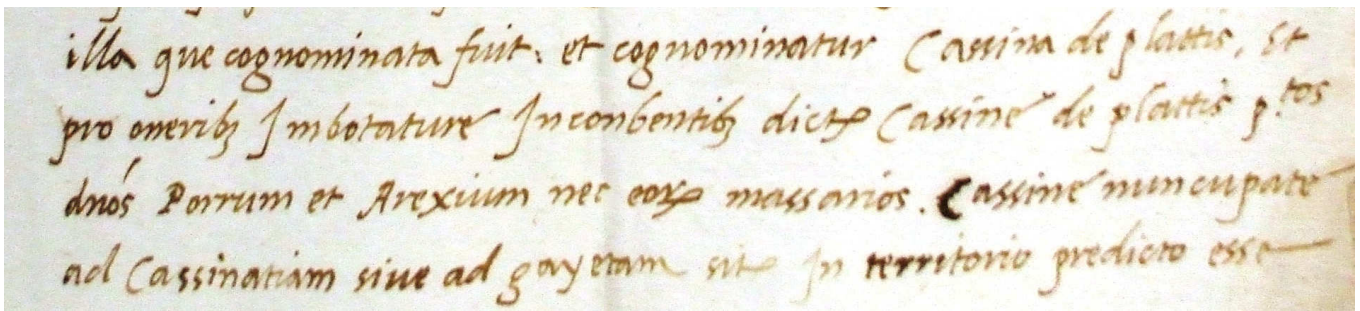 illa que cognominata fuit: et cognominatur Cassina de plattis, Et
pro oneribꝫ Imbotature Inconbentibꝫ dictę Cassine de plattis p.tos
dnós Porrum et Arexium nec eorꝝ massarios. Cassine nuncupate
ad Cassinatiam sive ad gayetam sitę In territorio predicto esse